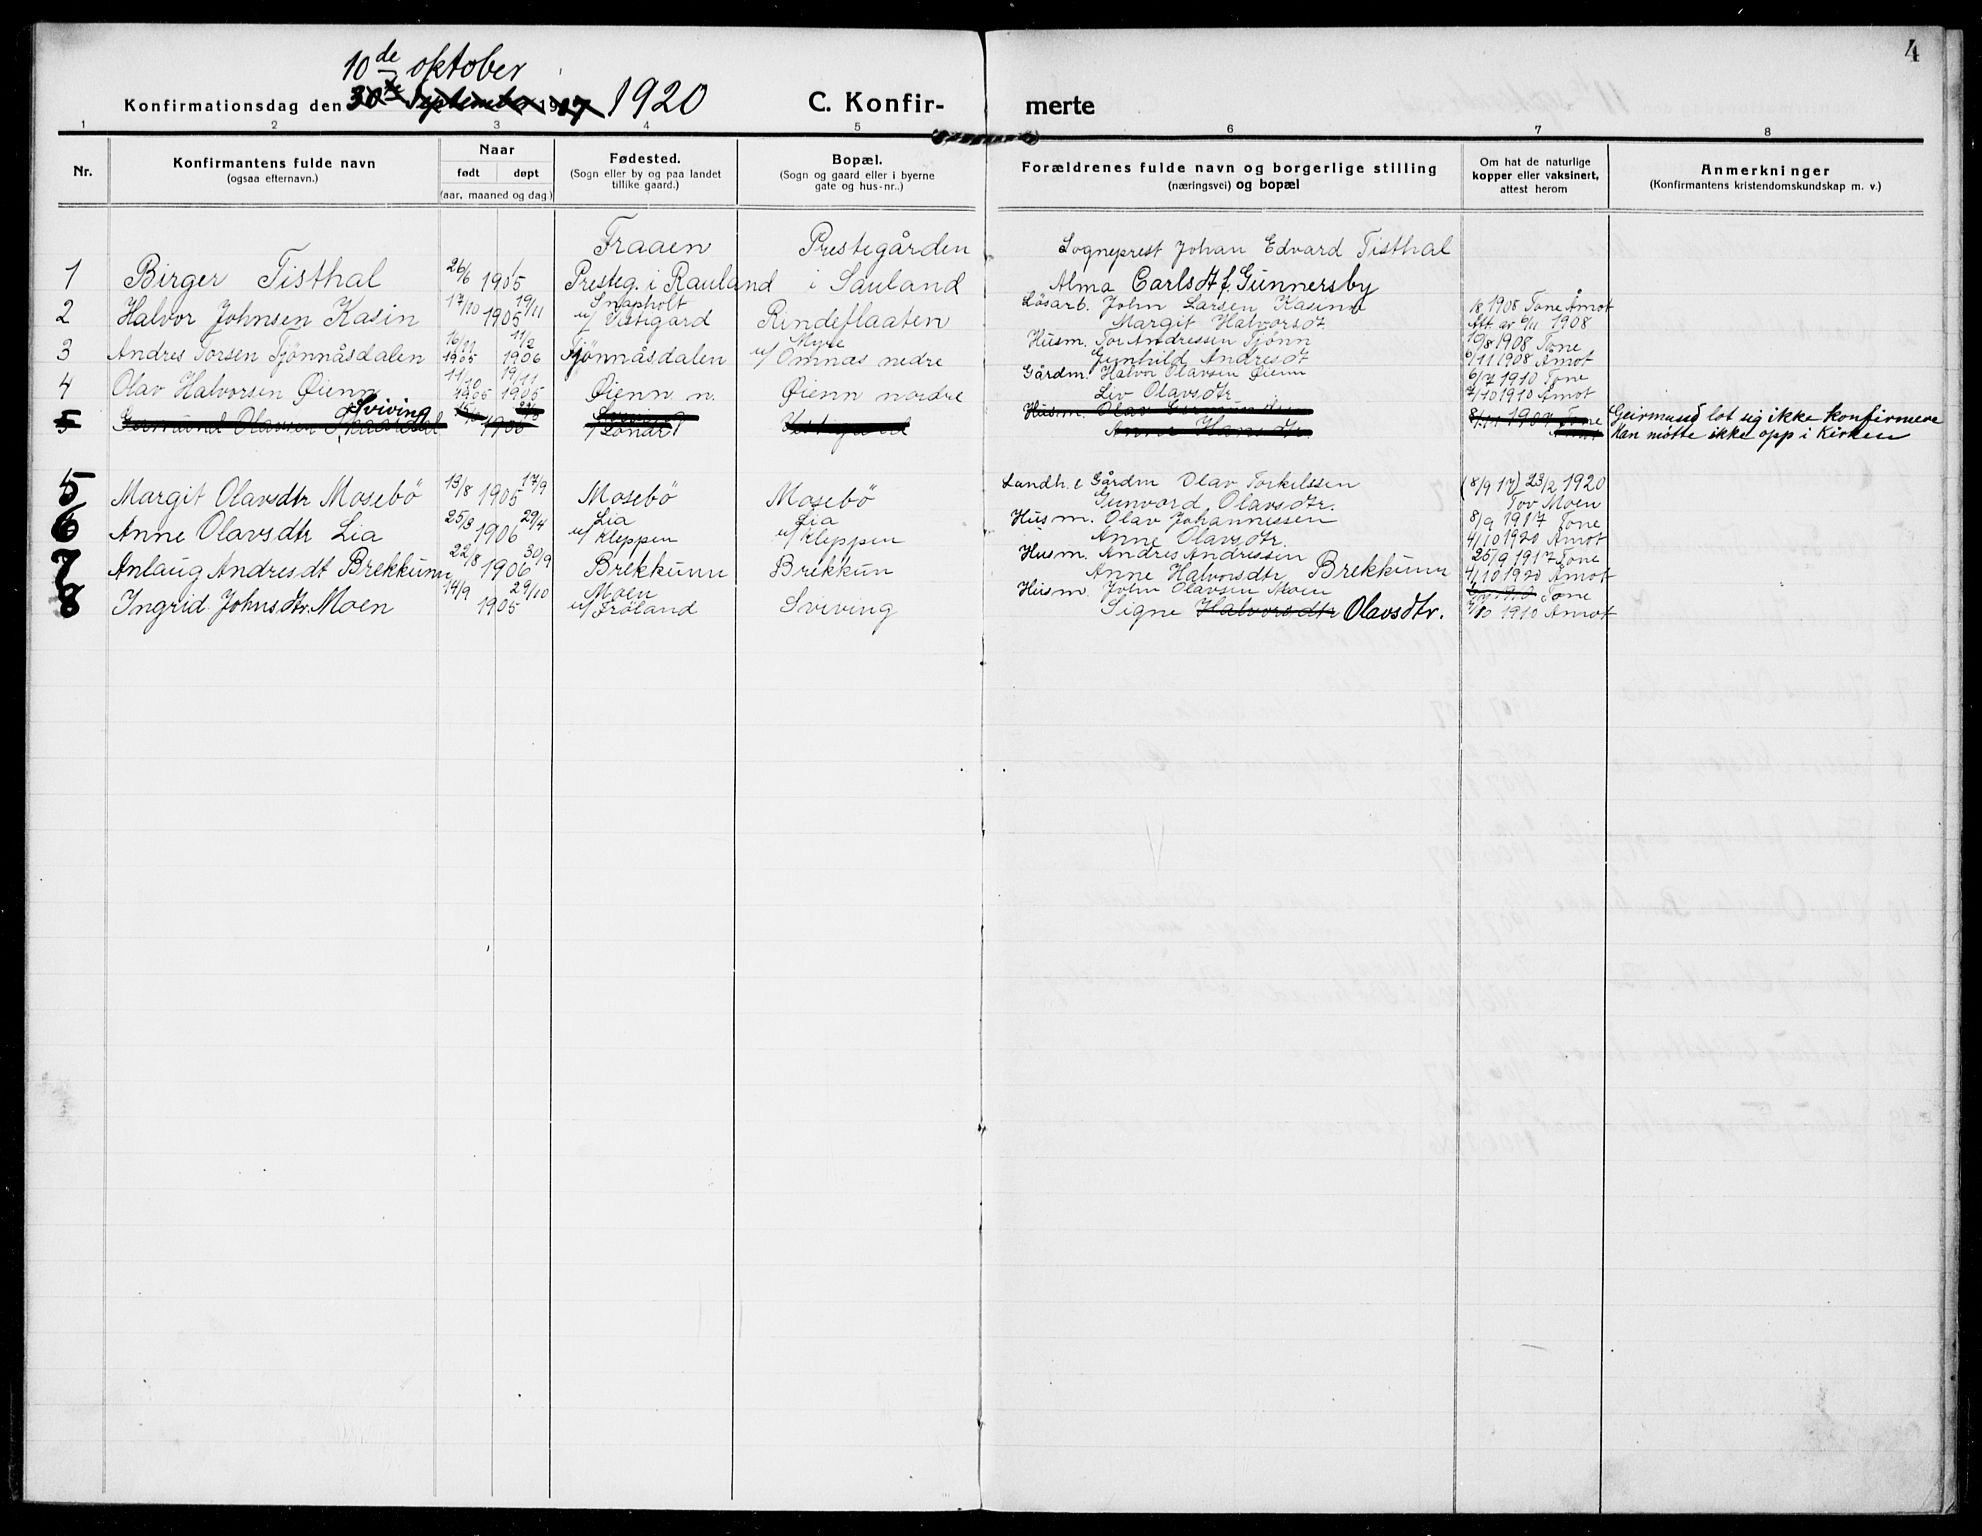 4
10de oktober
Konfirmationsdag den 30te September 1917 1920 C. Konfir- merte
1 2 3 4 5 6 7 8
Nr.
Konfirmantens fulde navn
(ogsaa efternavn.)
Naar
født døpt
(aar, maaned og dag)
Fødested.
(Sogn eller by og paa landet
tillike gaard.)
Bopæl.
(Sogn og gaard eller i byerne
gate og hus-nr..)
Forældrenes fulde navn og borgerlige stilling
(næringsvei) og bopæl
Om hat de naturlige
kopper eller vaksinert,
attest herom
Anmerkninger
(Konfirmantens kristendomskundskap m. v.)
Fraaen Prestegården Sogneprest Johan Edvard Tisthal
1 Birger Tisthal 26/6 1905 Presteg. i Rauland i Sauland Alma Carlsdt f. Gunnersby
Snapholt Løsarb. John Larsen Kasinn 1908 Tone Åmot
2 Halvor Johnsen Kasin 17/10 1905 19/11 u/ Vistigård Rindeflaaten Margit Halvorsdt. Att av 6/11 1908
Myre Husm. Tor Andressen Tjönn 19/8 1908 Tone
3 Andres Torsen Tjönnåsdalen 1905 11/2 1906 Tjönnåsdalen u/ Omnas nedre Gunhild Andresdt 6/11 1908 Åmot
Gårdm. Halvor Olavsen Øienn 6/7 1910 Tone
4 Olav Halvorsen Øienn 11/10 1905 19/11 1905 Øienn n. Øienn nordre Liv Olavsdtr 7/10 1910 Åmot
Sviving Husm. Olav Tone Geirmund lot sig ikke konfirmere
5 Olavsen 1906 u/ Lonar Anne Hansdtr. Åmot Han møtte ikke opp i Kirken
Landh. & Gårdm Olav Torkilssen (8/9 17) 23/2 1920
5 Margit Olavsdtr Mosebö 13/8 1905 17/9 Mosebö Mosebö Gunvord Olavsdtr. Tov Moen
Lia Lia Husm. Olav Johannessen 8/9 1917 Tone
6 Anne Olavsdtr Lia 25/3 1906 29/4 u/ Kleppen u/ Kleppen Anne Olavsdtr. 4/10 1920 Åmot
Husm. Andres Andressen 25/9 1917 Tone
7 Anlaug Andresdt Brekkunn 22/8 1906 30/9 Brekkunn Brekkun Anne Halvorsdtr Brekkunn 4/10 1920 Åmot
Moen Husm. John Olavsen Moen Tone
8 Ingrid Johnsdtr. Moen 14/9 1905 29/10 u/ Fröland Sviving Signe Halvorsdtr Olavsdtr. 1910 Åmot